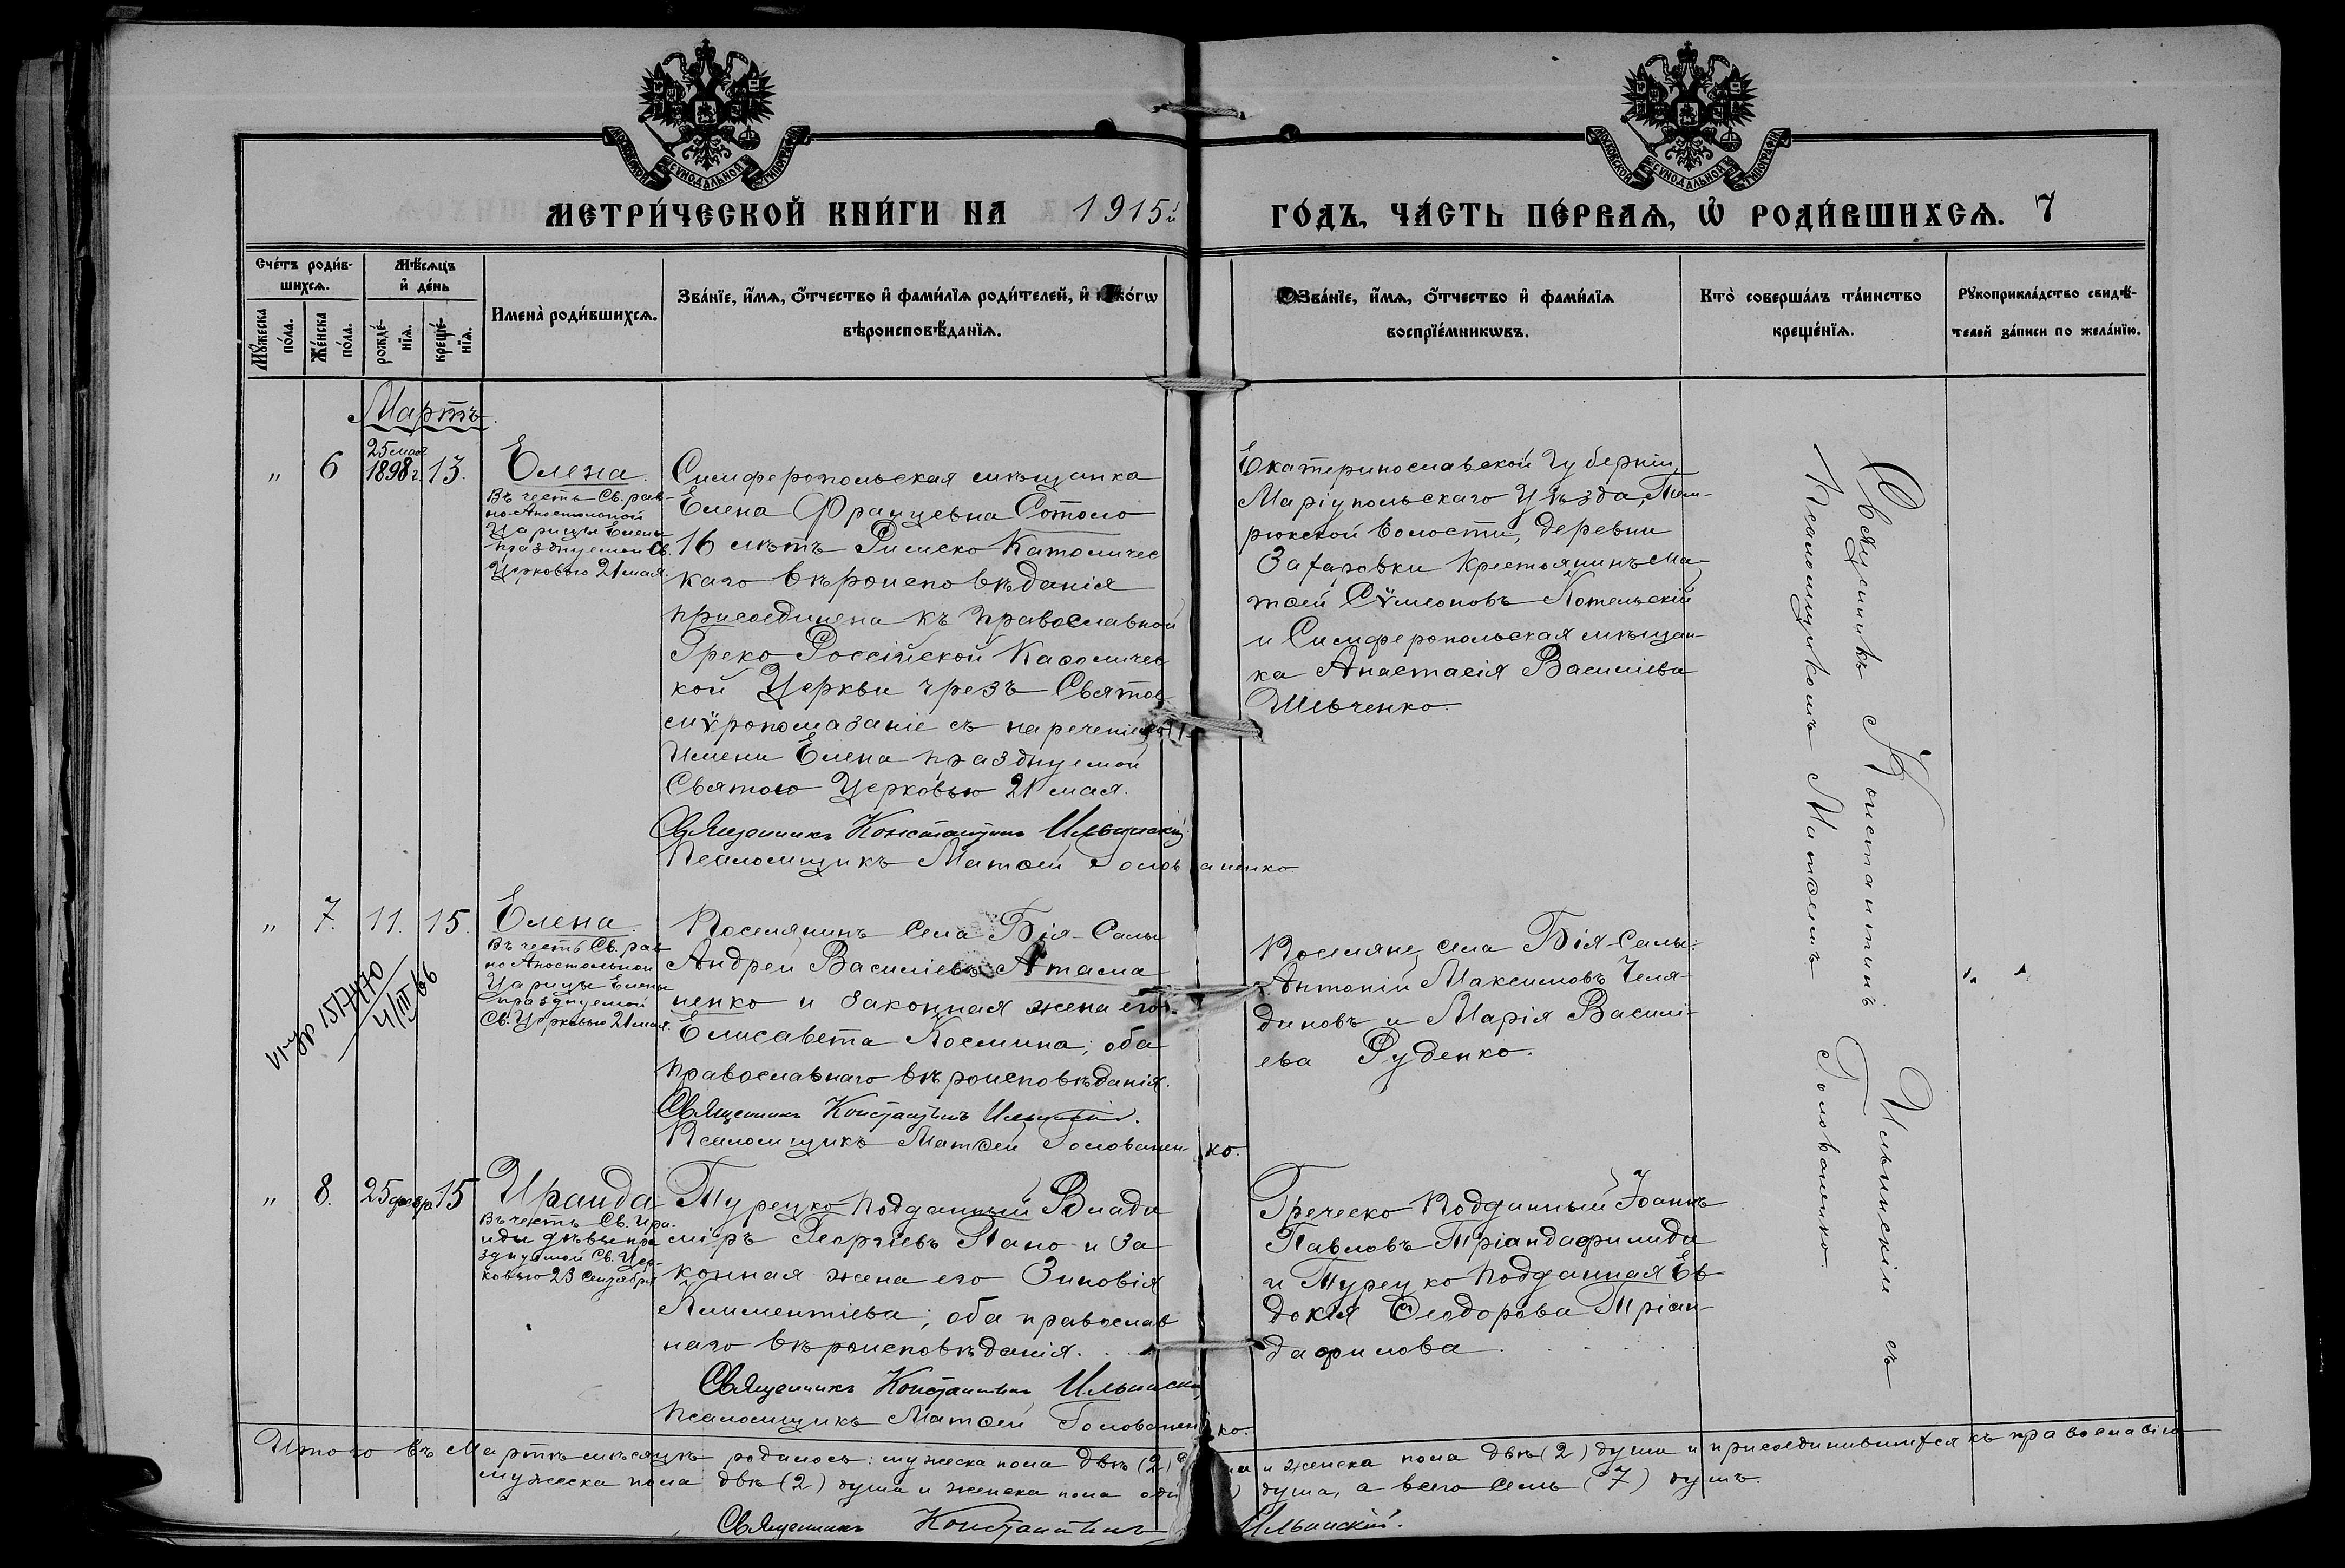 МОСКОВСКОЙ СѴНОДАЛЬНОЙ ТИПОГРАФІИ
МОСКОВСКОЙ СѴНОДАЛЬНОЙ ТИПОГРАФІИ
МЕТРИ́ЧЕСКОЙ КНИ́ГИ НА 1915й ГО́ДЪ, ЧА́СТЬ ПЕ́РВАѦ, Ѡ҆ РОДИ́ВШИХСѦ. 7
Сче́тъ роди́в-
шихсѧ.
Мꙋ́жеска по́ла.
Же́нска по́ла.
Мѣ́сѧцъ
и҆ де́нь
рожде́-
нїѧ.
креще́-
нїѧ.
Имена̀ роди́вшихсѧ.
Зва́нїе, и҆́мѧ, ѻ҆́тчество и҆ фами́лїѧ роди́телей, и҆ како́гѡ
вѣроисповѣ́данїѧ.
Зва́нїе, и҆́мѧ, ѻ҆́тчество и҆ фами́лїѧ
воспрїе́мникѡвъ.
Кто̀ соверша́лъ та́инство
креще́нїѧ.
Рꙋкоприкла́дство свидѣ́-
телей за́писи по жела́нїю.
Мартъ.
„ 6 25 мая 1898 г. 13.
Елена.
Въ честь Св. рав-
ноАпостольной
Царицы Елены
празднуемой Св.
Церковью 21 мая.
Симферопольская мѣщанка
Елена Францевна Сотоло
16 лѣтъ Римско Католичес
каго вѣроисповѣданія
присоединена къ православной
Греко Россійской Каѳоличес
кой Церкви чрезъ Святое
мѵропомазаніе съ нареченіемъ
имени Елена празднуемой
Святою Церковью 21 мая.
Священникъ Константинъ Ильинскій
Псаломщикъ Матѳей Голованенко
Екатеринославской губерніи,
Маріупольскаго уѣзда, Тем-
рюкской волости, деревни
Захаровки крестьянинъ Ма-
тѳей Сѵмеоновъ Котельскій
и Симферопольская мѣщан-
ка Анастасія Василіева
Шевченко.
Священникъ Константинъ Ильинскій съ
Псаломщикомъ Матѳеемъ Голованенко.
„ 7. 11. 15.
Елена.
Въ честь Св. рав
ноАпостольной
Царицы Елены
празднуемой
Св. Церковью 21 мая.
4/III 66
Поселянинъ села Бія-Салы
Андрей Василіевъ Атама
ненко и законная жена его
Елисавета Космина; оба
православнаго вѣроисповѣданія.
Священникъ Константинъ Ильинскій.
Псаломщикъ Матѳей Голованенко.
Поселяне села Бія-Салы:
Антоній Максимовъ Челя-
диновъ и Марія Василі-
ева Руденко.
„ 8. 25 февр. 15
Ираида
Въ честь Св. Ира-
иды дѣвы пра
зднуемой Св. Цер-
ковью 23 сентября
Турецко подданный Влади
міръ Георгіевъ Пано и за
конная жена его Зиновія
Климентіева; оба православ
наго вѣроисповѣданія.
Священникъ Константинъ Ильинскій
Псаломщикъ Матѳей Голованенко.
Греческо подданный Іоаннъ
Павловъ Тріандафилиди
и Турецко подданная Ев-
докія Ѳеодорова Тріан-
дафилова
Итого въ Мартѣ мѣсяцѣ родилось: мужеска пола двѣ (2) и женска пола двѣ (2) души и присоединившихся къ православію
мужеска пола двѣ (2) души и женска пола душа, а всего семь (7) душъ.
Священникъ Константинъ Ильинскій.